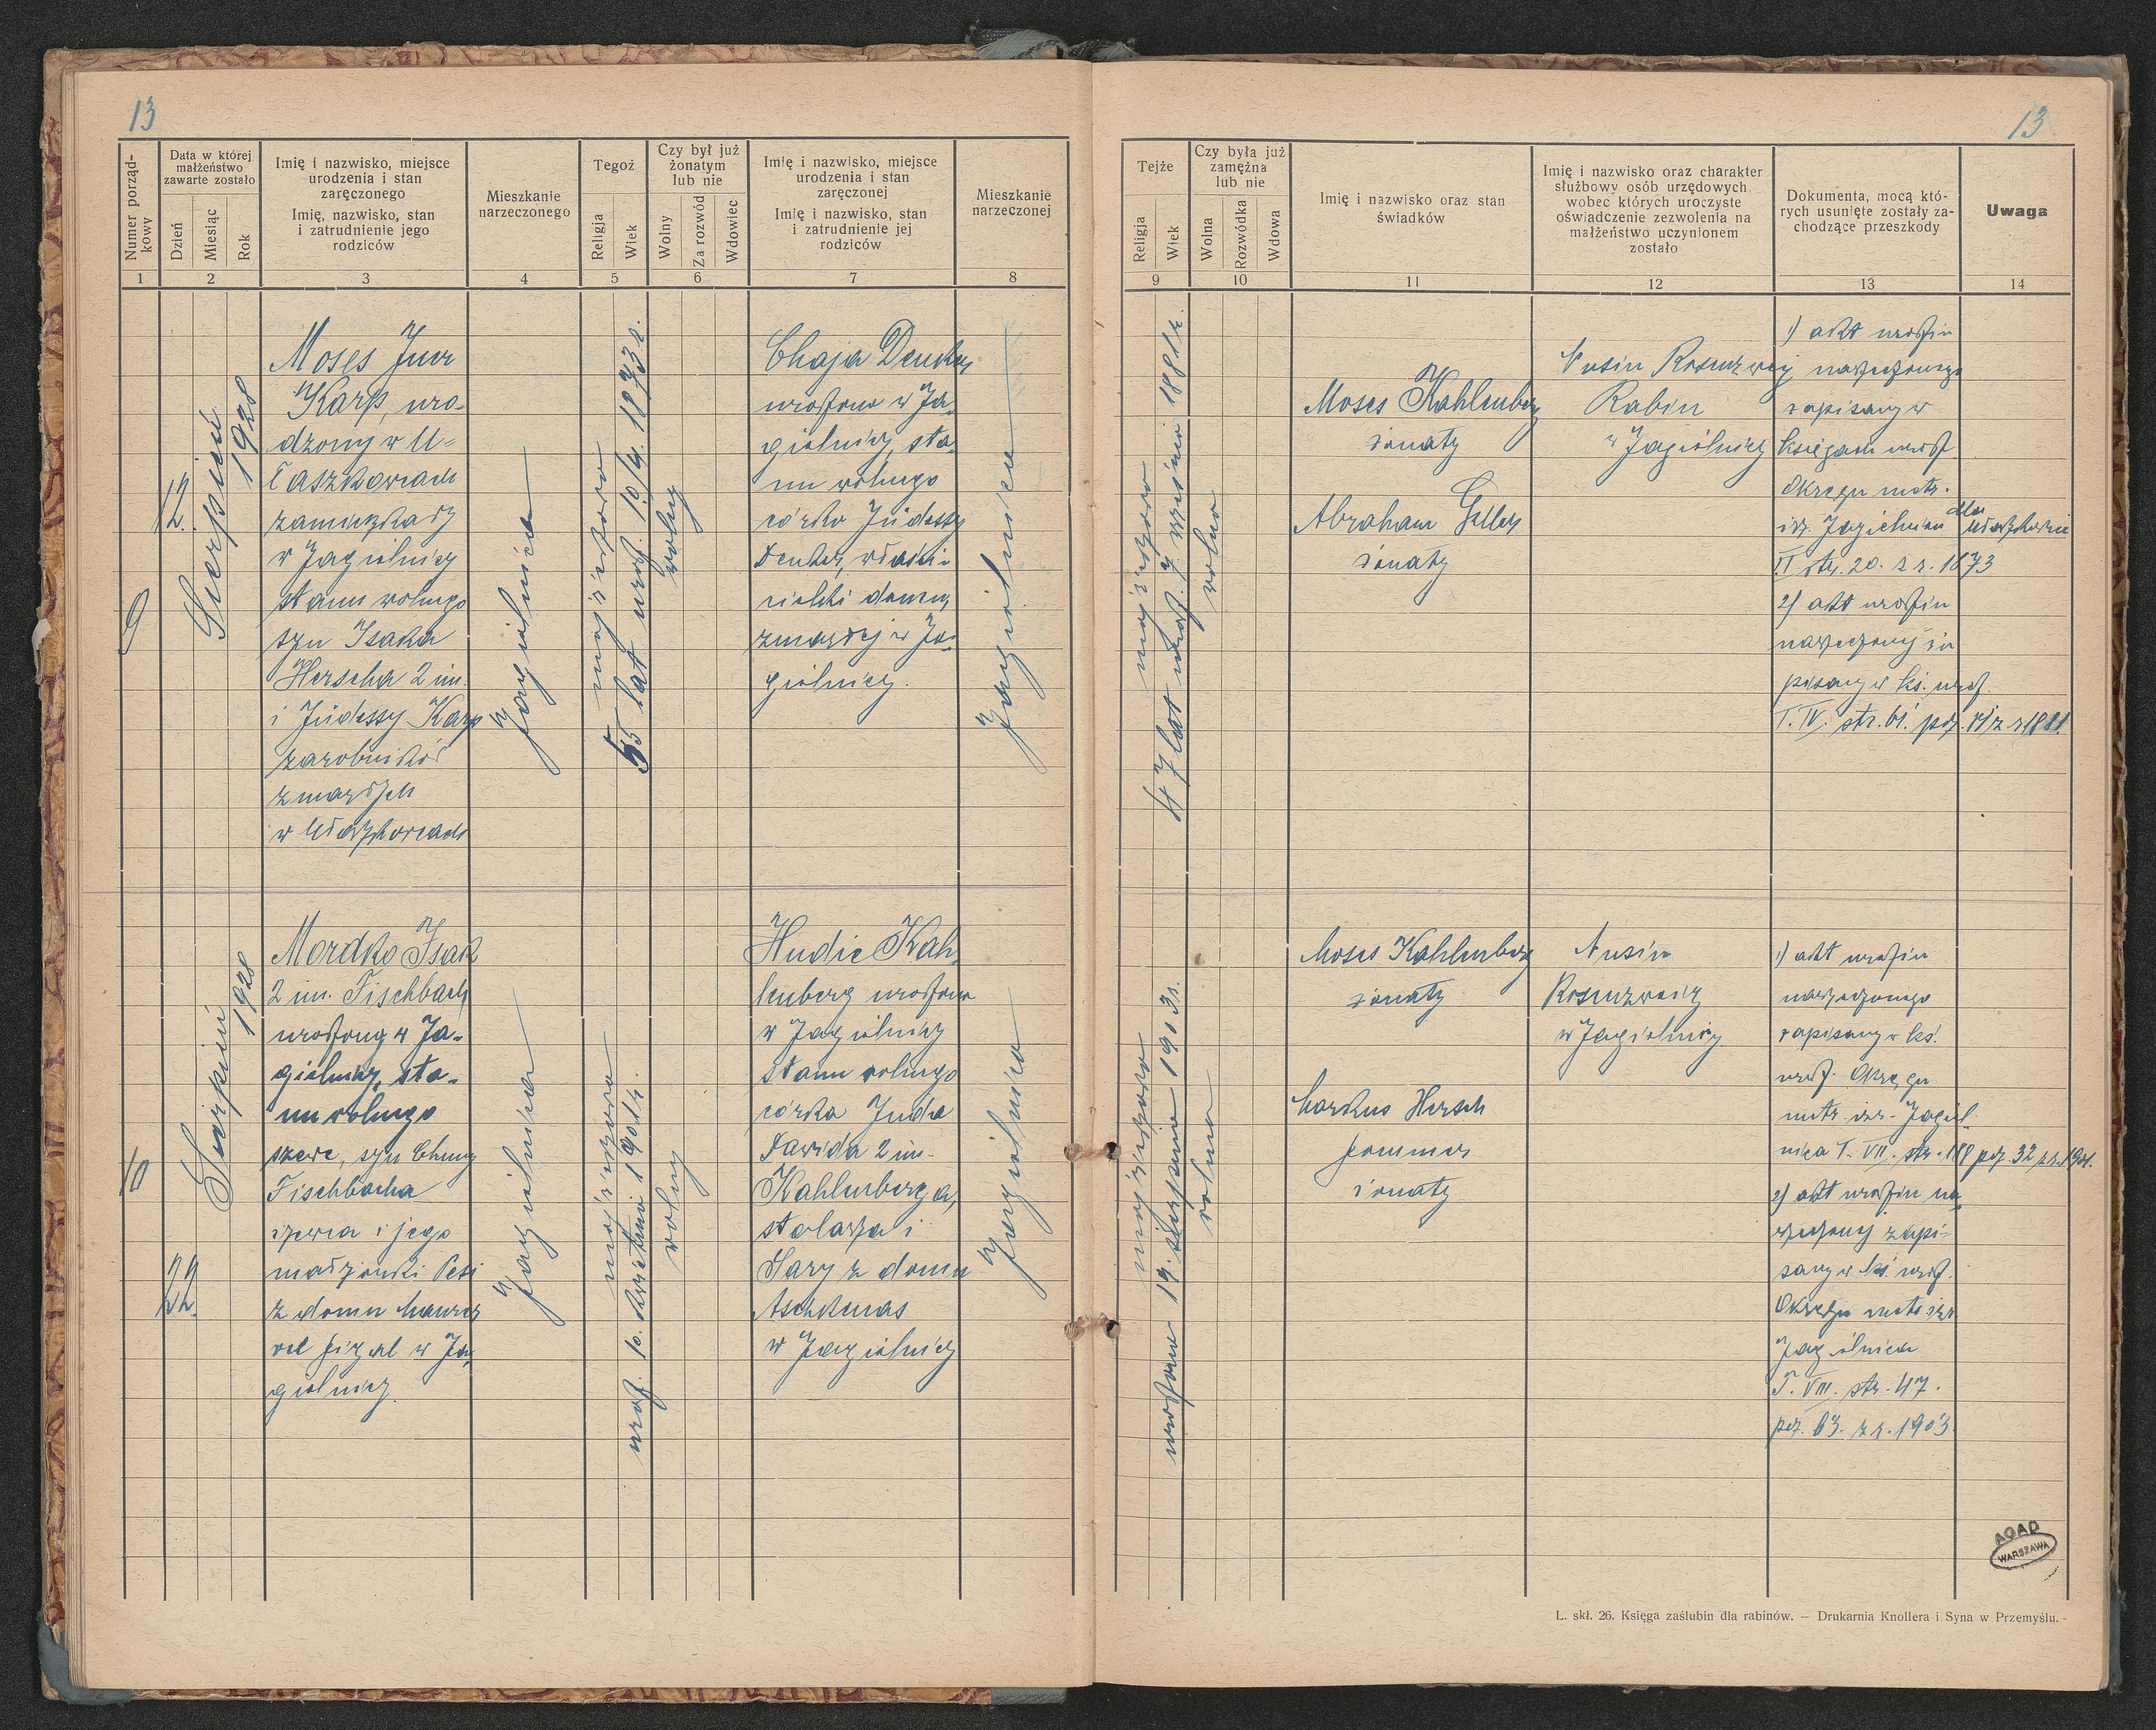 13
13
Numer porząd-
kowy
Data w której
małżeństwo
zawarte zostało
Dzień
Miesiąc
Rok
Imię i nazwisko, miejsce
urodzenia i stan
zaręczonego
Imię, nazwisko, stan
i zatrudnienie jego
rodziców
Mieszkanie
narzeczonego
Tegoż
Religja
Wiek
Czy był już
żonatym
lub nie
Wolny
Za rozwód
Wdowiec
Imię i nazwisko, miejsce
urodzenia i stan
zaręczonej
Imię i nazwisko, stan
i zatrudnienie jej
rodziców
Mieszkanie
narzeczonej
1 2 3 4 5 6 7 8
Tejże
Religja
Wiek
Czy była już
zamężna
lub nie
Wolna
Rozwódka
Wdowa
Imię i nazwisko oraz stan
świadków
Imię i nazwisko oraz charakter
służbowy osób urzędowych
wobec których uroczyste
oświadczenie zezwolenia na
małżeństwo uczynionem
zostało
Dokumenta, mocą któ-
rych usunięte zostały za-
chodzące przeszkody
Uwaga
9 10 11 12 13 14
9
12.
Sierpień
1928
Moses
Karp, uro-
dzony w U-
łaszkowcach
zamieszkały
w Jagielnicy
stanu wolnego
syn Isaka
Herscha 2 im.
i Judessy Karp
zarobników
zmarłych
w Ułaszkowcach
Jagielnica
mojżeszowa
55 lat urodz. 10/9. 1873 r.
wolny
Chaja
urodzona w Ja-
gielnicy, sta-
nu wolnego
córka Judessy
właści-
cielki domu,
zmarłej w Ja-
gielnicy.
Jagielnica
mojżeszowa
47 lat urodz. 7. września 1881 r.
wolna
Moses Kahlenberg
żonaty
Abraham Geller
żonaty
Nusin Rosenzweig
Rabin
w Jagielnicy
1) akt urodzin
narzeczonego
zapisany w
księgach urodz.
Okręgu metr.
izr. Jagielnica dla Ułaszkowiec
II str. 20. z r. 1873
2) akt urodzin
narzeczonej za-
pisany w ks. urodz.
T. IV. str. 61. poz. z r. 1881.
10
22.
Sierpień
1928
Mordko Isak
2 im. Fischbach
urodzony w Ja-
gielnicy, sta-
nu wolnego
szewc, syn
Fischbacha
szewca i jego
małżonki Pesi
z domu
vel w Ja-
gielnicy.
Jagielnica
mojżeszowa
urodz. 10. kwietnia 1901 r.
wolny
Hudie Kah-
lenberg urodzona
w Jagielnicy
stanu wolnego
córka Juda
Dawida 2 im.
Kahlenberga,
stolarza i
Sary z domu
Aschkenas
w Jagielnicy
Jagielnica
mojżeszowa
urodzona 19. sierpnia 1903 r.
wolna
Moses Kahlenberg
żonaty
Markus Hersch
Sommer
żonaty
Nusin
Rosenzweig
w Jagielnicy
1) akt urodzin
narzeczonego
zapisany w ks.
urodz. Okręgu
metr. izr. Jagiel-
nica T. VII. str. 118 poz. 32 z r. 1901.
2) akt urodzin na-
rzeczonej zapi-
sany w ks. urodz.
Okręgu metr. izr.
Jagielnica
T. VIII. str. 47.
poz. 63. z r. 1903
AGAD
WARSZAWA
L. skł. 26. Księga zaślubin dla rabinów. — Drukarnia Knollera i Syna w Przemyślu.